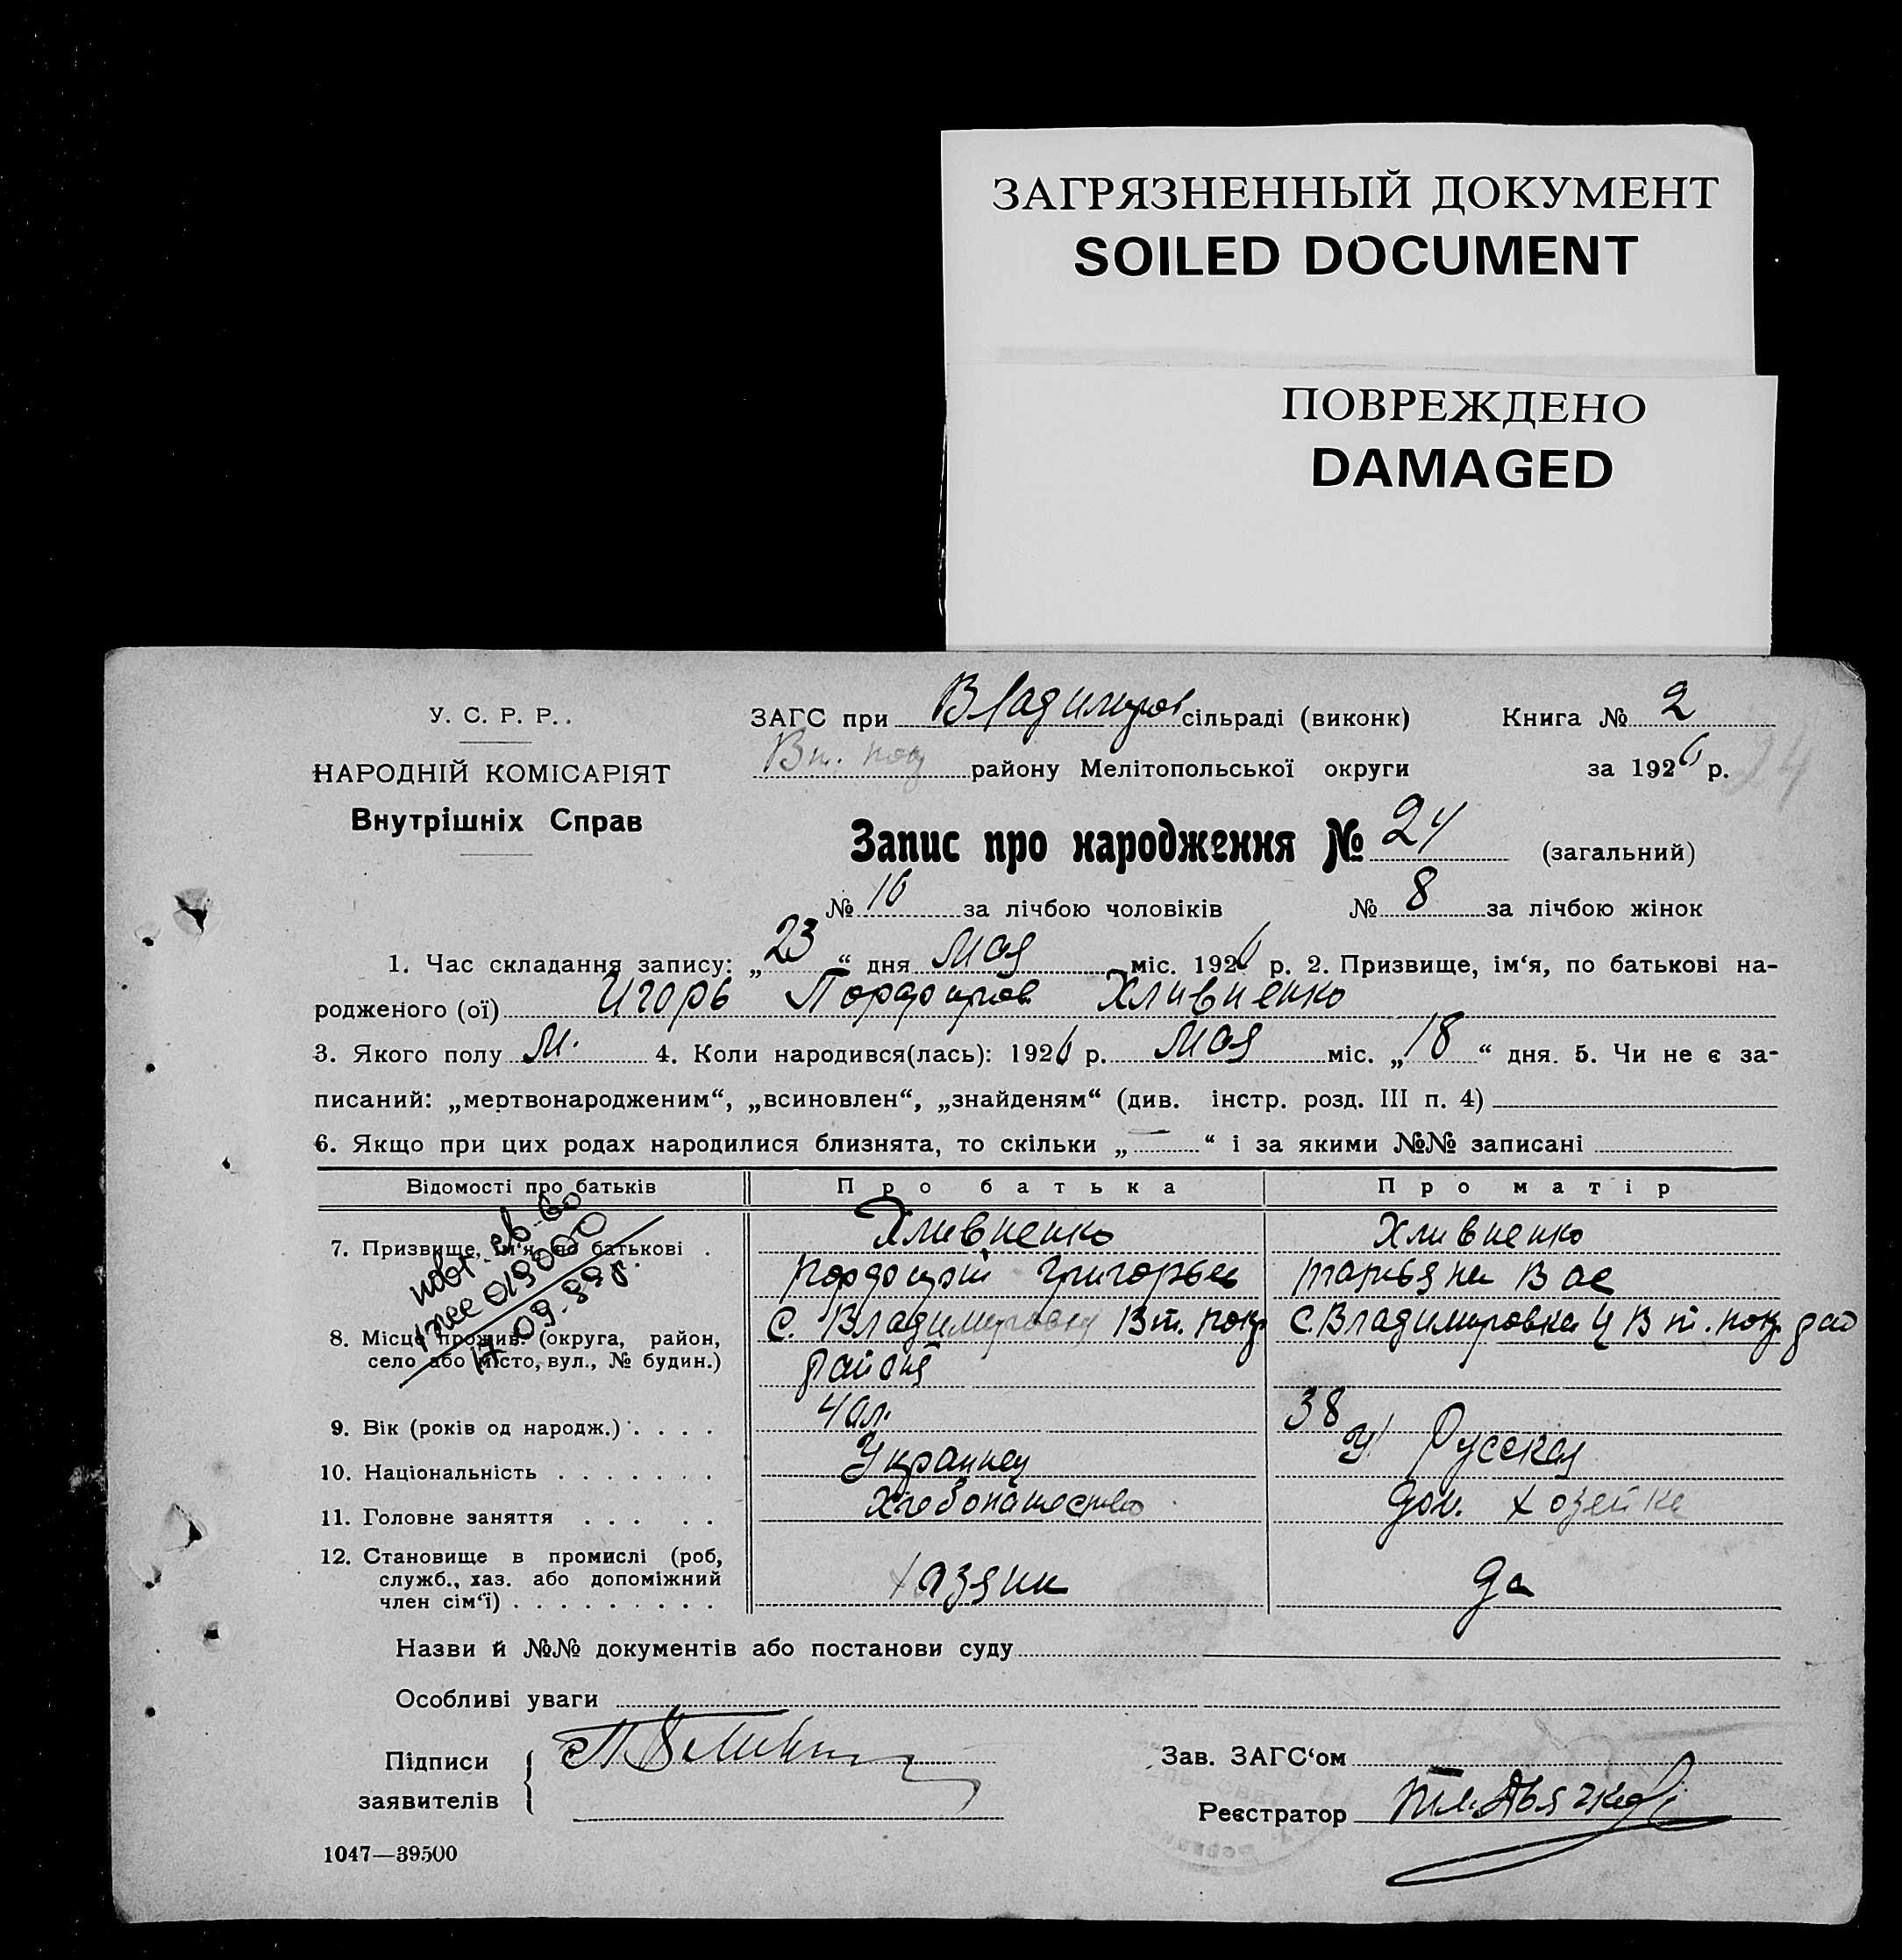 ЗАГРЯЗНЕННЫЙ ДОКУМЕНТ
SOILED DOCUMENT
ПОВРЕЖДЕНО
DAMAGED
У. С. Р. Р..
НАРОДНІЙ КОМІСАРІЯТ
Внутрішніх Справ
ЗАГС при Владимиров сільраді (виконк) Книга № 2
Вт. пок району Мелітопольської округи за 1926 р.
24
Запис про народження № 24 (загальний)
№ 16 за лічбою чоловіків № 8 за лічбою жінок
1. Час складання запису: „23“ дня Мая міс. 1926 р. 2. Призвище, ім‘я, по батькові на-
родженого (ої) Игорь Порфиров Хливненко
3. Якого полу М. 4. Коли народився(лась): 1926 р. Мая міс. „18“ дня. 5. Чи не є за-
писаний: „мертвонародженим“, „всиновлен“, „знайденям“ (див. інстр. розд. III п. 4)
6. Якщо при цих родах народилися близнята, то скільки „—“ і за якими №№ записані
Відомості про батьків Про батька Про матір
7. Призвище, ім‘я, по батькові . Хливненко Хливненко
Порфирий Григорьев Татьяна Вас
8. Місце прожив. (округа, район, село або місто, вул., № будин.) с. Владимировка Вт. пок. с. Владимировка Вт. пок. рай
района
повт. св-во
17.09.99г.
9. Вік (років од народж.) . . . . 40л. 38
10. Національність . . . . . . . Украинец У Русская
11. Головне заняття . . . . . Хлебопашество дом. хозейка
12. Становище в промислі (роб, служб., хаз. або допоміжний член сім‘ї) . . . . . . . . . хазяин да
Назви й №№ документів або постанови суду
Особливі уваги
Підписи заявителів
Зав. ЗАГС‘ом
Реєстратор
1047—39500